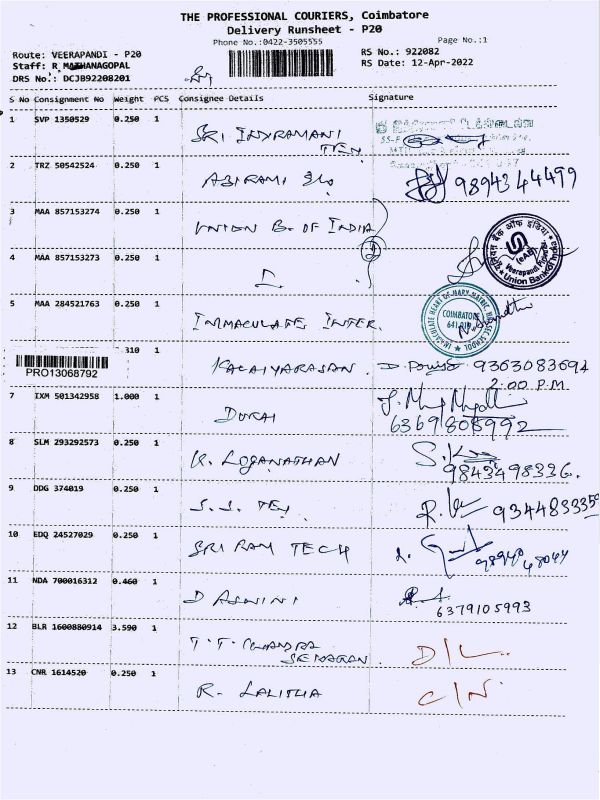 THE PROFESSIONAL COURIERS, Coimbatore
Delivery Runsheet - P20
Phone No.:0422-3505555
Page No.:1
Route: VEERAPANDI - P20
RS No.: 922082
Staff: R MATHANAGOPAL
RS Date: 12-Apr-2022
DRS No.: DCJB92208201
S No Consignment No Weight PCS Consignee Details Signature
1 SVP 1350529 0.250 1
SRI INDRAMANI
TEX
2 TRZ 50542524 0.250 1 ABIRAMI 9894344499
3 MAA 857153274 0.250 1 UNION B. OF INDIA
Union Bank of India
4 MAA 857153273 0.250 1
5 MAA 284521763 0.250 1 IMMACULATE INTER.
IMMACULATE HEART OF MARY MATRIC. HR. SEC SCHOOL
COIMBATORE
PRO13068792
.310 1 KALAIYARASAN 9363083694
2:00 P.M
7 IXM 501342958 1.000 1 DURAI
6369808992
8 SLM 293292573 0.250 1 K. LOGANATHAN 9843498336.
9 DDG 374019 0.250 1 S.S. TEX
10 EDQ 24527029 0.250 1 SRI RAM TECH
11 NDA 700016312 0.460 1 D ASWINI
6379105993
12 BLR 1600880914 3.590 1 T.T. CHANDRA
SEKARAN. D/L
13 CNR 1614520 0.250 1 R. LALITHA C/N